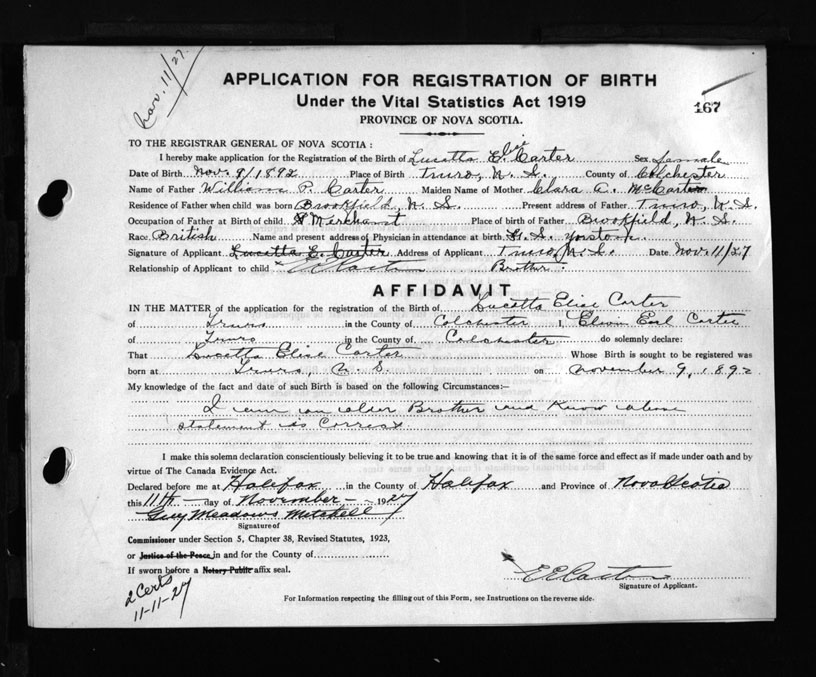 Nov. 11/27.
APPLICATION FOR REGISTRATION OF BIRTH
Under the Vital Statistics Act 1919
167
PROVINCE OF NOVA SCOTIA.
TO THE REGISTRAR GENERAL OF NOVA SCOTIA:
I hereby make application for the Registration of the Birth of Lucetta Elsie Carter Sex Female
Date of Birth Nov. 9/1892 Place of Birth Truro, N. S. County of Colchester
Name of Father William P. Carter Maiden Name of Mother Clara A. McCarter
Residence of Father when child was born Brookfield, N. S. Present address of Father Truro, N. S.
Occupation of Father at Birth of child. Merchant Place of birth of Father Brookfield, N. S.
Race British Name and present address of Physician in attendance at birth H. S. Yorston.
Signature of Applicant Lucetta E. Carter Address of Applicant Truro, N. S. Date Nov. 11/27
Relationship of Applicant to child E E Carter Brother.
AFFIDAVIT
IN THE MATTER of the application for the registration of the Birth of Lucetta Elise Carter
of Truro in the County of Colchester I, Elwin Earl Carter
of Truro in the County of Colchester do solemnly declare:
That Lucetta Elise Carter Whose Birth is sought to be registered was
born at Truro, N. S. on November 9, 1892
My knowledge of the fact and date of such Birth is based on the following Circumstances:—
I am an older Brother and Know above
statement is Correct
I make this solemn declaration conscientiously believing it to be true and knowing that it is of the same force and effect as if made under oath and by
virtue of The Canada Evidence Act.
Declared before me at Halifax in the County of Halifax and Province of Nova Scotia
this 11th day of November 1927
Guy Meadows Mitchell
Signature of
Commissioner under Section 5, Chapter 38, Revised Statutes, 1923,
or Justice of the Peace in and for the County of
If sworn before a Notary Public affix seal.
E E Carter
Signature of Applicant.
2 Certs
11-11-27
For Information respecting the filling out of this Form, see Instructions on the reverse side.